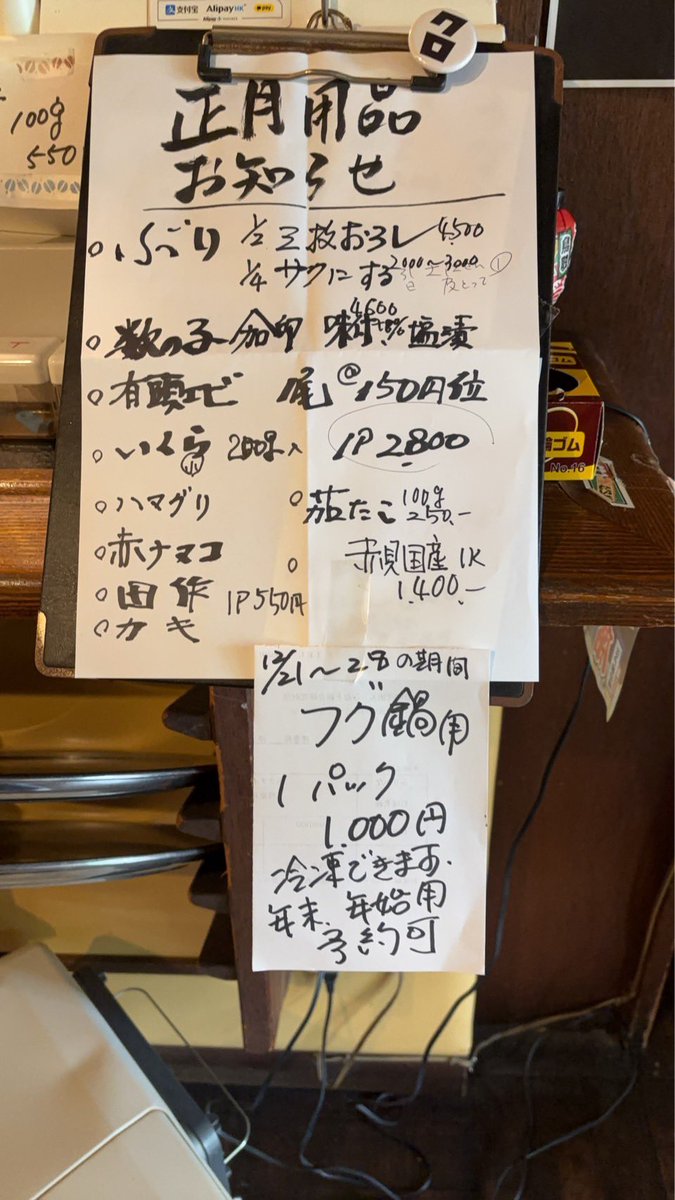 支付宝 Alipay HK pay
クロ
100g
550
正月用品
お知らせ
ぶり 1/2 三枚おろし 4,500
1/4 サクにする 2000〜3000
数の子 加印 4600 塩漬
有頭エビ 尾@150円位
いくら 200g入 1P 2.800
ハマグリ
茹たこ 100g 250.-
赤ナマコ
赤貝国産 1K
1.400.-
田作 1P 550円
カキ
輪ゴム
No.16
12/21〜28の期間
フグ鍋用
1パック
1.000円
冷凍できます.
年末、年始用
予約可